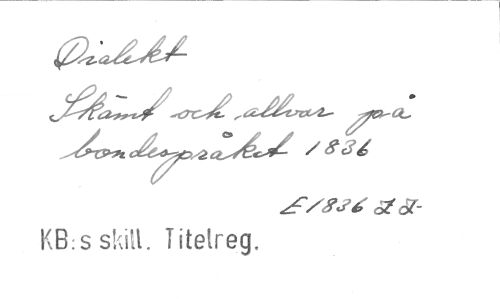 Dialekt
Skämt och allvar på
bondespråket 1836
E 1836
KB:s skill. Titelreg.